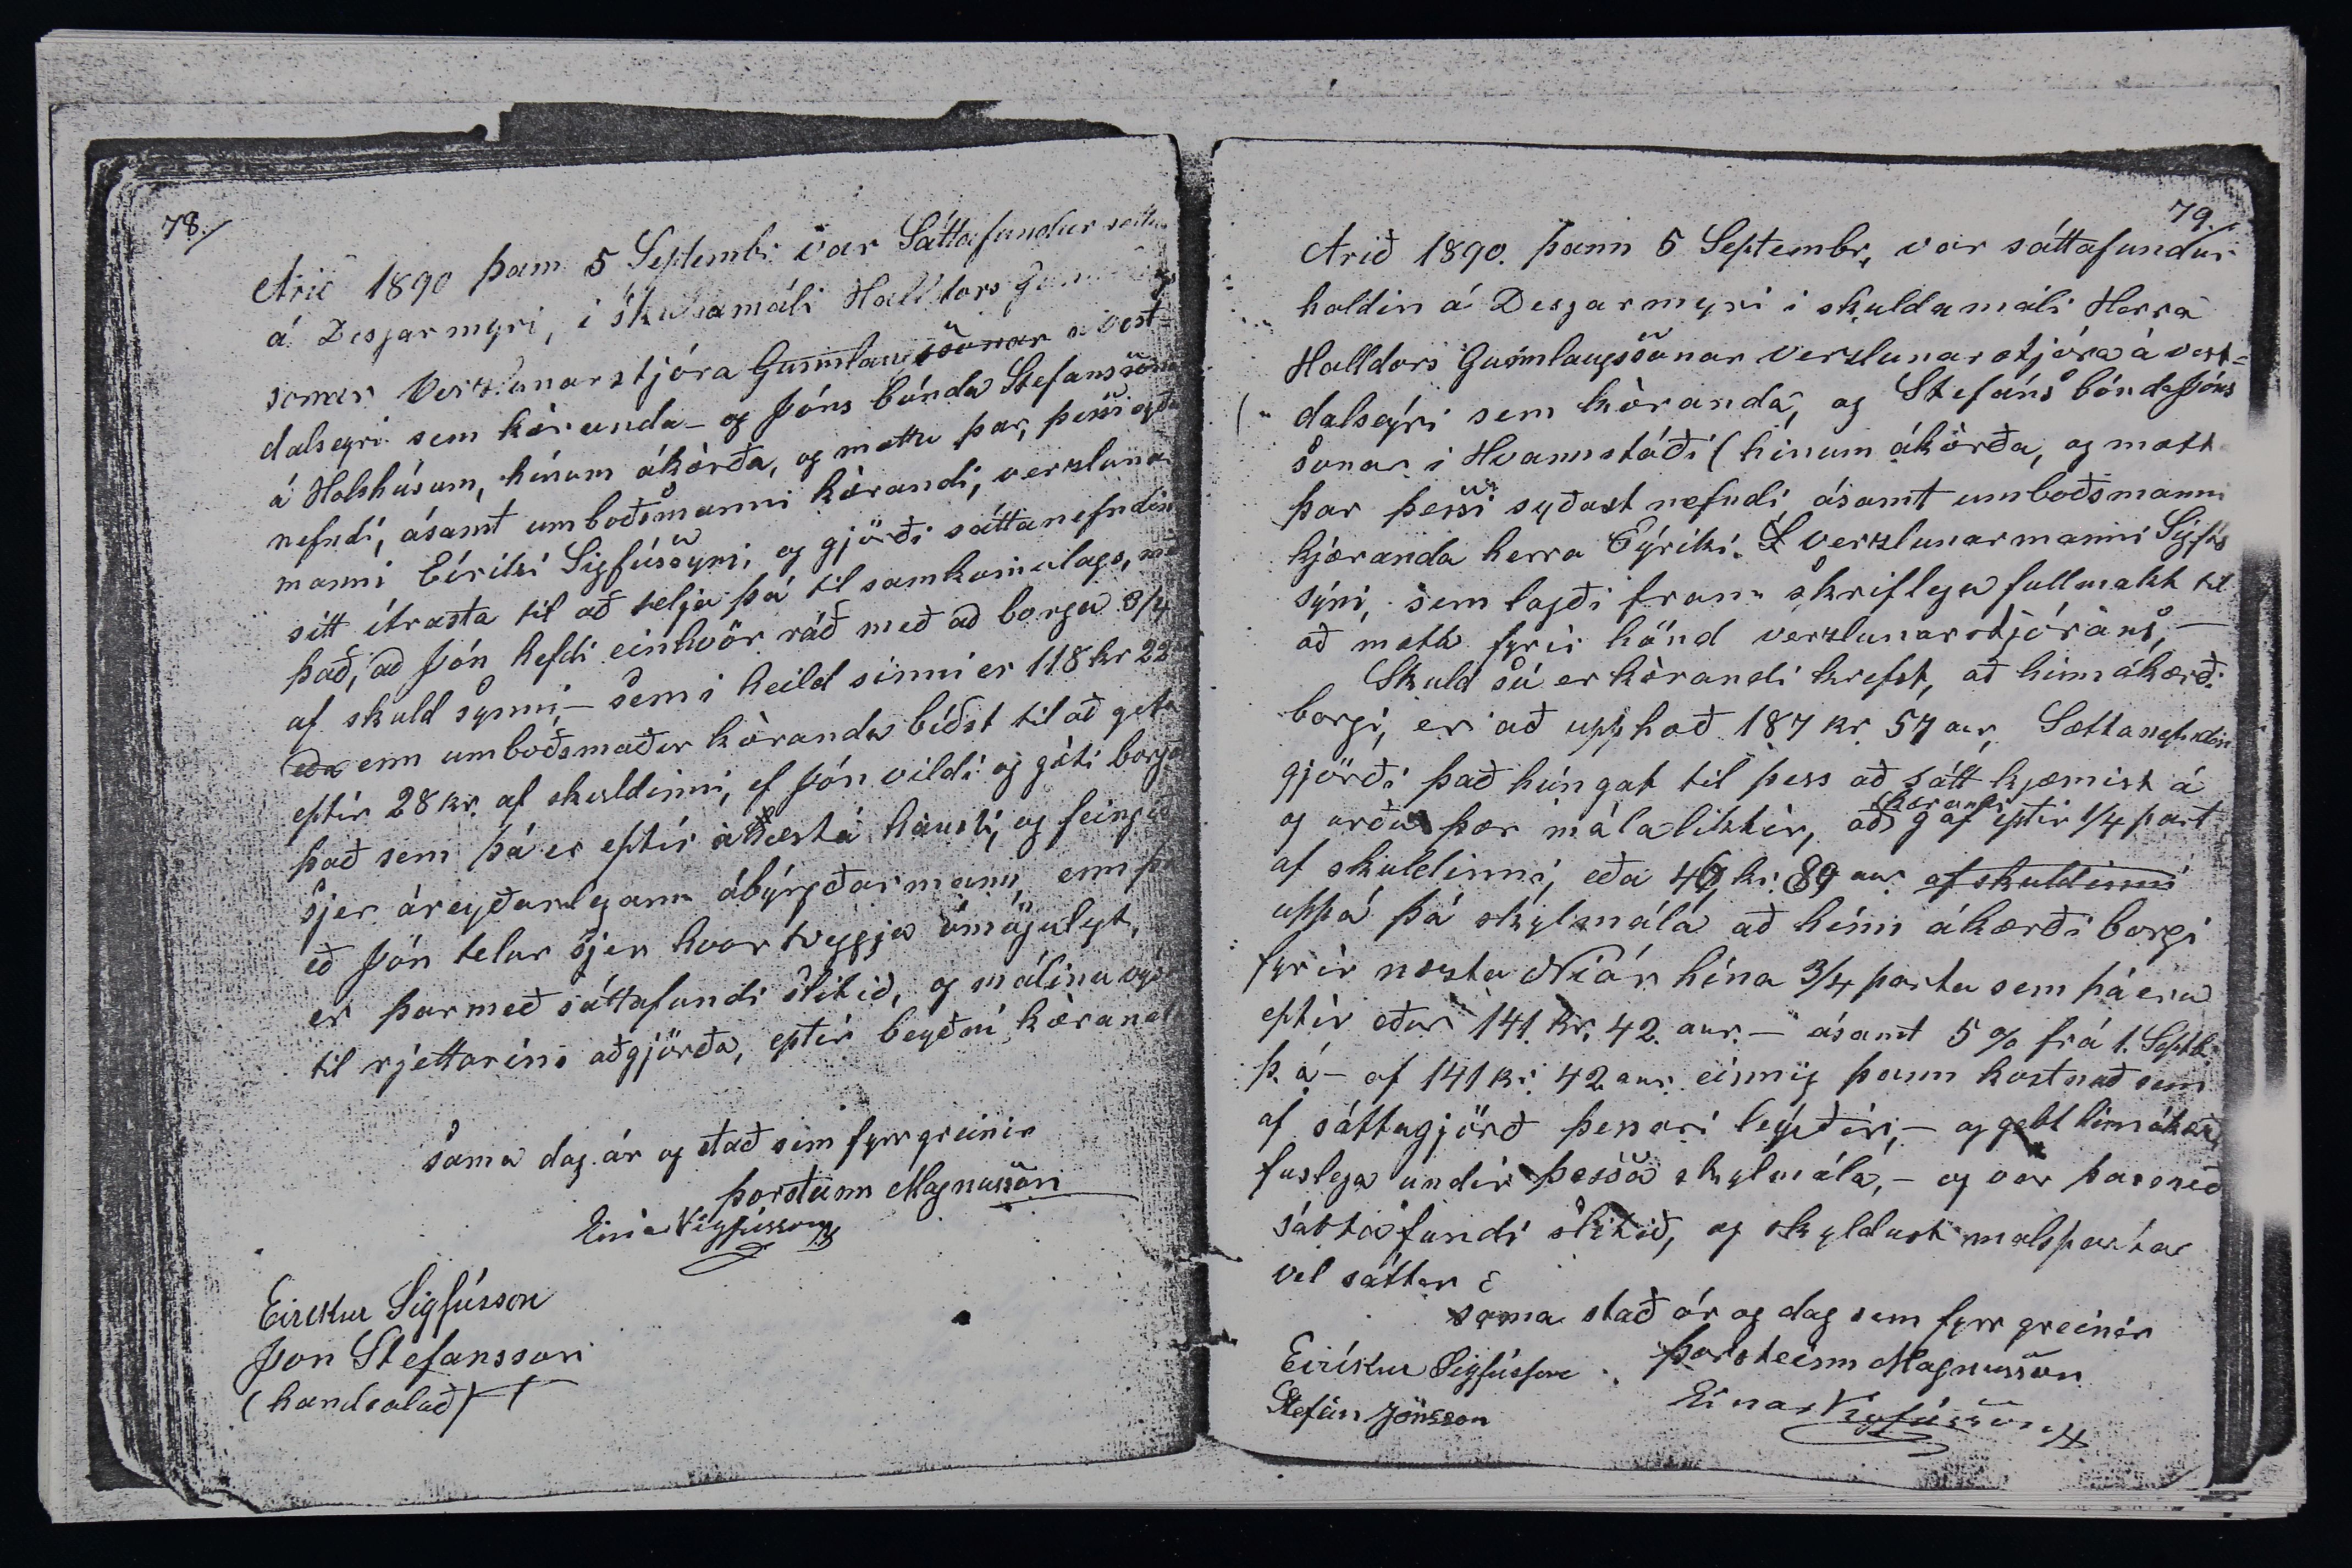 78.
Arið 1890 þann 5 Septembr var Sáttafundur
á Desjarmyri, i skuldamáli Halldors
sonar Verzlunarstjóra Gunnlaugssonar a vest-
dalseyri sem kòranda - og Jóns bónda Stefanssonar
á Hólshúsum, hinum ákòrða, og mættu þar, þessi
nefndi, ásamt umboðsmanni kòrandi, verzlunar
manni Eiriki Sigfússyni, og gjörði sáttanefndin
sitt ítrasta til að telja þá til samkomulags,
það, að Jón hefdi einhvör ráð með að borga 3/4
af skuld synni, - sem i heild sinni er 118 kr 22
eða enn umboðsmaður kòranda bíðst til að gefa
eptir 28 kr. af skuldinni, ef Jón vildi og gèti borga
það sem þá er eptir á næsta hausti, og feingið
sjer áreyðanlegann ábyrgðarmann, enn
ið Jón telur sjer hvortveggja ómögulegt,
er þarmeð sáttafundi slitið, og málinu
til rjettarins aðgjörða, eptir beyðni kòranda
sama dag ár og stað sem fyrr greinir
Þorsteinn Magnusson
Einar Vigfússon
Eirikur Sigfússon
Jon Stefansson
(handsalað)
79.
Arið 1890. þann 5 Septembr, var sáttafundur
haldin á Desjarmyri i skuldamáli Herra
Halldors Gunnlaugssonar verzlunarstjóra á vest-
dalseyri sem kòranda, og Stefáns bónda Jóns
sonar i Hvannstóði (hinum ákòrða, og mætt
þar þessi syðast nefndi ásamt umboðsmanni
kjæranda herra Eyriki verzlunarmanni Sigfús
syni, sem lagði fram skriflega fullmakt til
að mæta fyrir hönd verzlunarstjórans, -
Skuld sú er kòrandi krefst, að hinn ákærði
borgi, er að upphæð 187 kr 57 aur, Sættanefndin
gjörði það hingat til þess að sátt kjæmist á
og urðu þær málaliktir, að kærandi gaf eptir 1/4 part
af skuldinni, eða 46 kr. 89 aur af skuldinni
uppá þá skylmála að hinn ákærði borgi
fyrir næsta Niár hina 3/4 parta sem þá eru
eptir eður 141. Kr. 42. aur. - ásamt 5 % frá 1. Septb.
þ. á - af 141 kr. 42 aur. einnig þann kostnað sem
af sáttagjörð þessari leyðir, - og gekk hinn ákærði
fuslega undir þessa skylmála, - og var þarmeð
sáttafundi slitið, og skyldust málspartar
vel sáttar
sama stað ár og dag sem fyrr greinir
Þorsteinn Magnusson
Eiríkur Sigfússon
Einar Vigfússon
Stefán Jónsson